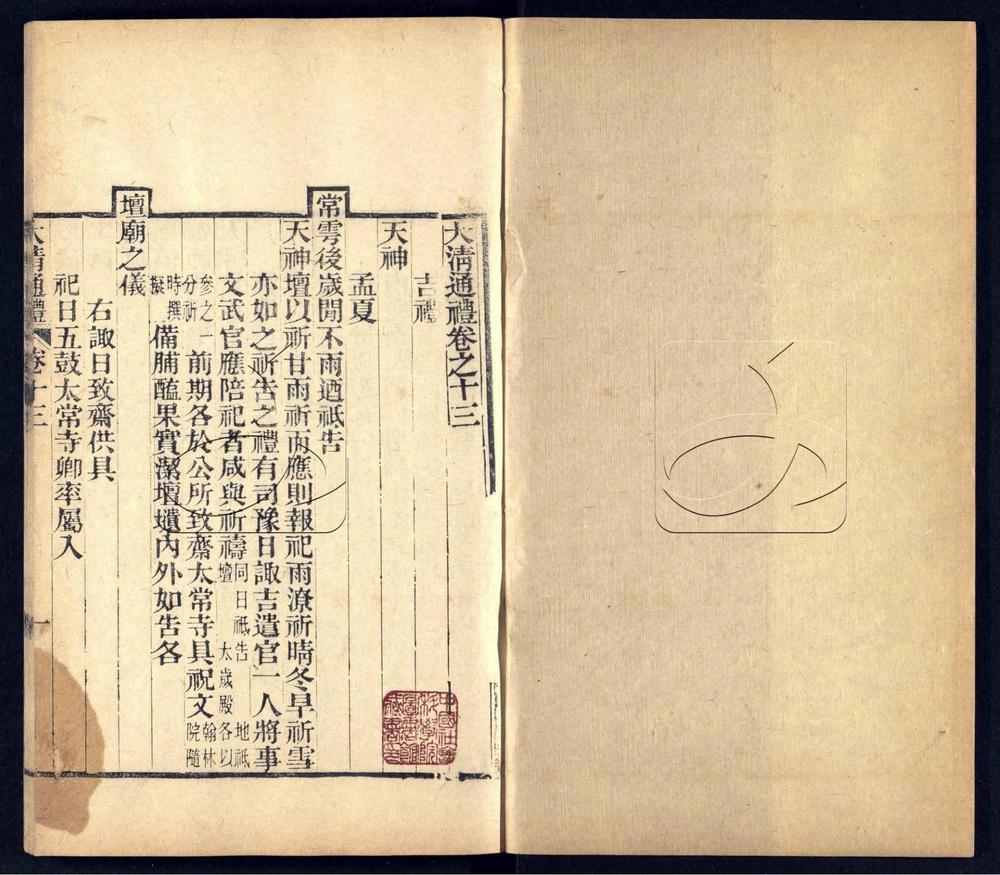 大淸通禮卷之十三
吉禮
天神
孟夏
常雩後歲閒不雨迺祇告
天神壇以祈甘雨祈而應則報祀雨潦祈晴冬旱祈雪
亦如之祈告之禮有司豫日諏吉遣官一人將事
文武官應陪祀者咸與祈禱同日祇告 地祇壇 太歲殿各以
參之一分祈前期各於公所致齋太常寺具祝文翰林院隨
時撰擬備脯醢果實潔壇壝內外如告各
壇廟之儀
右諏日致齋供具
祀日五鼓太常寺卿率屬入
大淸通禮 卷十三 一